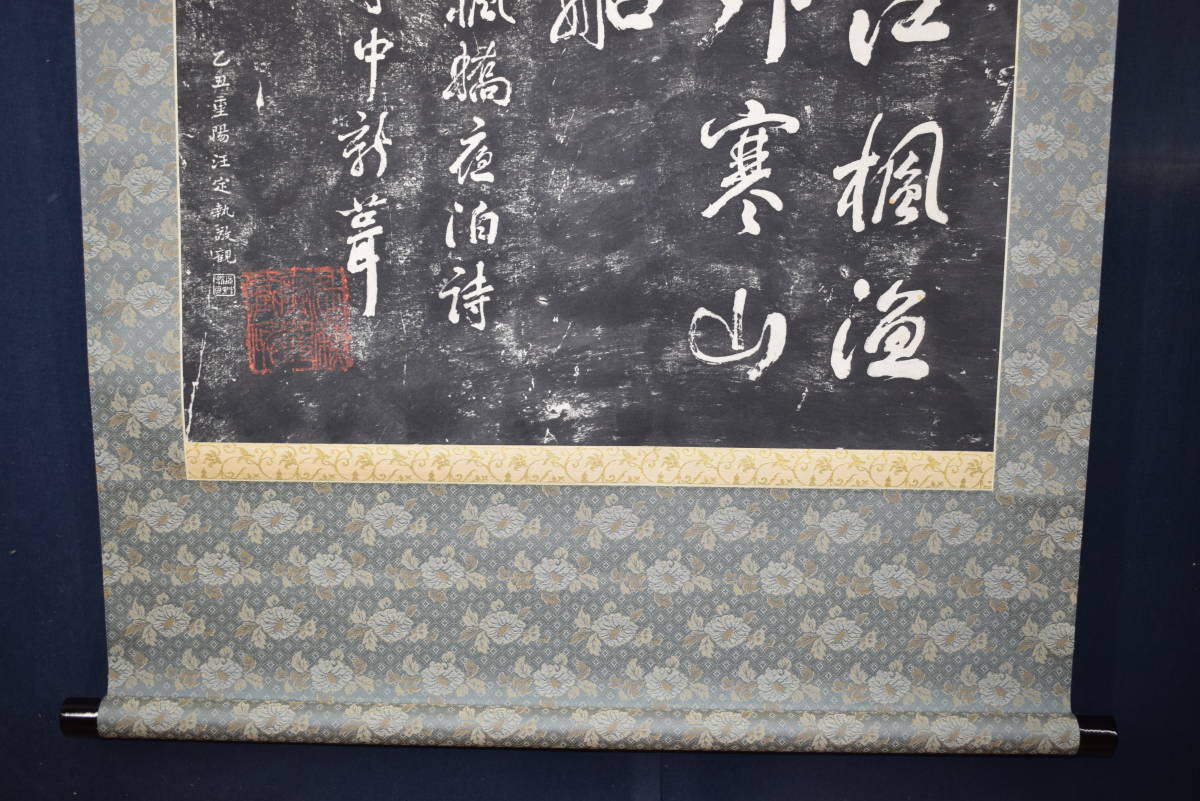 江楓漁
外寒山
船
楓橋夜泊詩
中新葺
乙丑重陽汪定執敬觀